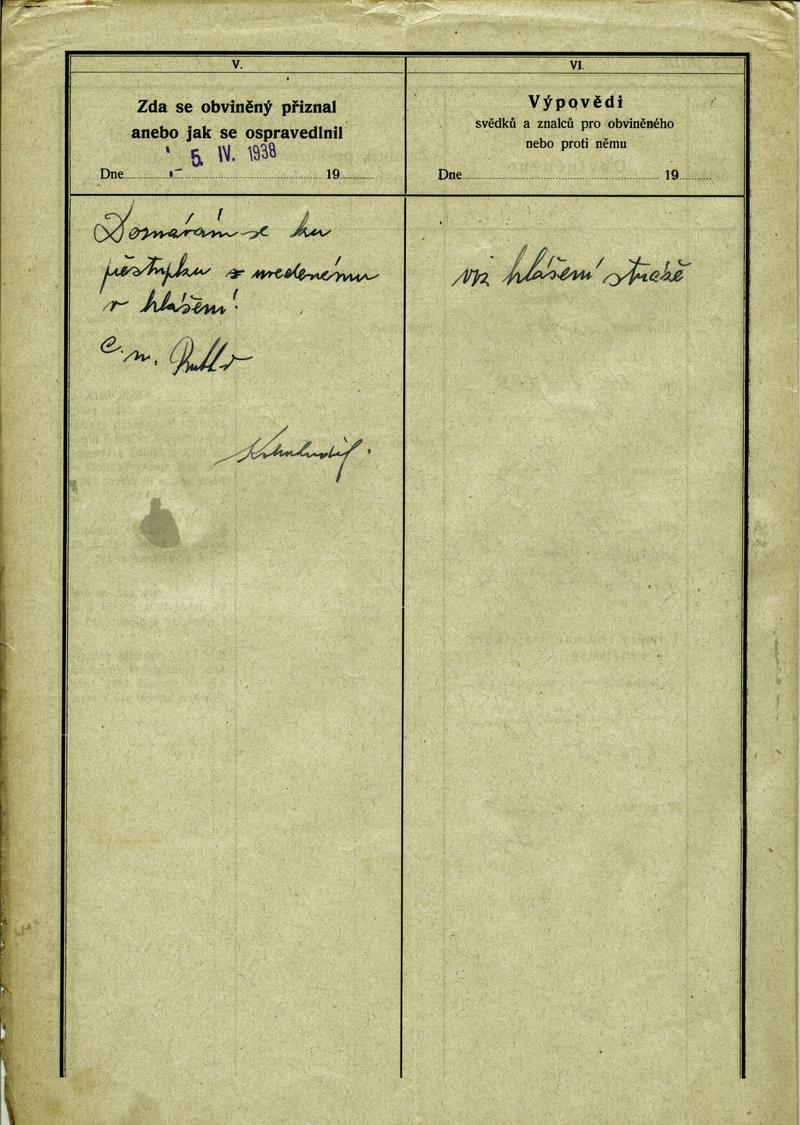 V.
Zda se obviněný přiznal
anebo jak se ospravedlnil
- 5. IV. 1938
Dne 19
Doznávám se ku
přestupku uvedenému
v hlášení!
VI.
Výpovědi
svědků a znalců pro obviněného
nebo proti němu
Dne 19
viz hlášení stráže